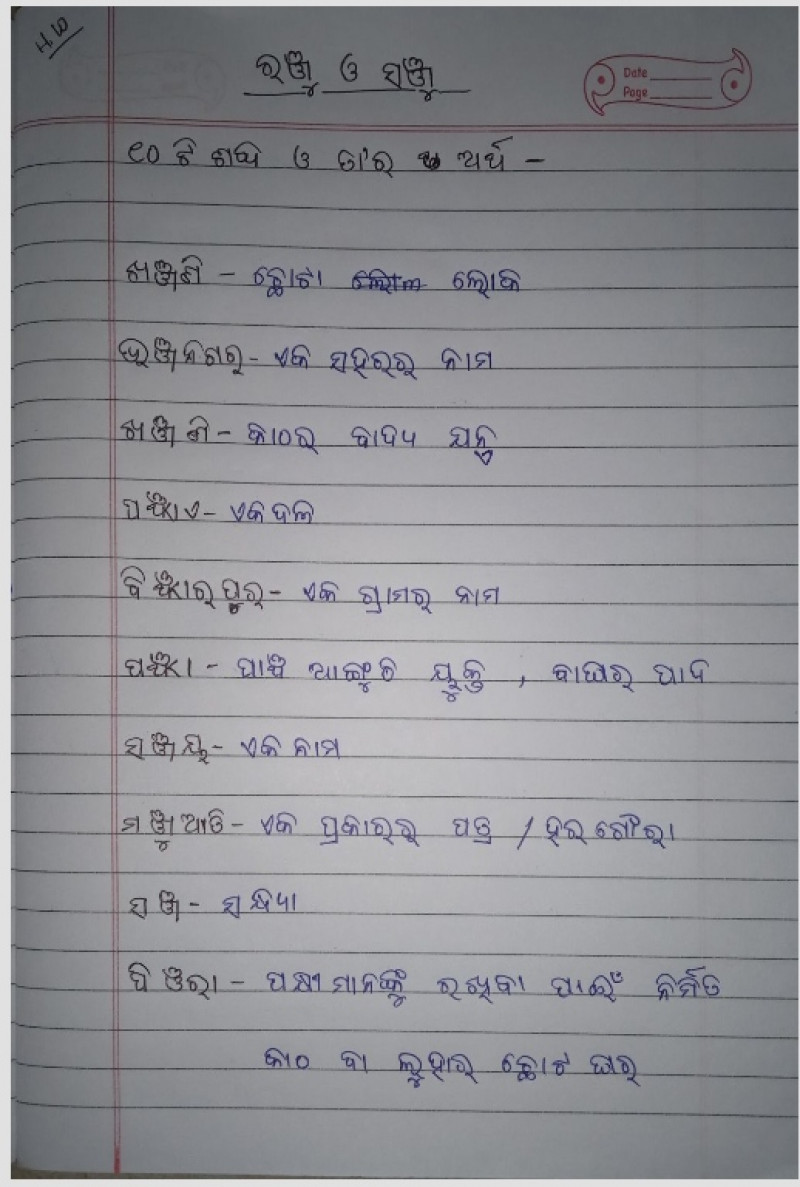 H.W
ରଞ୍ଜୁ ଓ ସଞ୍ଜୁ
Date
Page
୧୦ ଟି ଶବ୍ଦ ଓ ତା'ର ଅର୍ଥ -
ଖଞ୍ଜଣି - ଛୋଟା ଲୋକ
ଭଞ୍ଜନଗର - ଏକ ସହରର ନାମ
ଖଞ୍ଜଣି - କାଠର ବାଦ୍ୟ ଯନ୍ତ୍ର
ପଞ୍ଝାଏ - ଏକଦଳ
ବିଞ୍ଝାରପୁର - ଏକ ଗ୍ରାମର ନାମ
ପଞ୍ଝା - ପାଞ୍ଚ ଆଙ୍ଗୁଠି ଯୁକ୍ତ , ବାଘର ପାଦ
ସଞ୍ଜୟ - ଏକ ନାମ
ମଞ୍ଜୁଆତି - ଏକ ପ୍ରକାରର ପତ୍ର / ହରଗୌରା
ସଞ୍ଜ - ସନ୍ଧ୍ୟା
ପିଞ୍ଜରା - ପକ୍ଷୀମାନଙ୍କୁ ରଖିବା ପାଇଁ ନିର୍ମିତ
କାଠ ବା ଲୁହାର ଛୋଟ ଘର